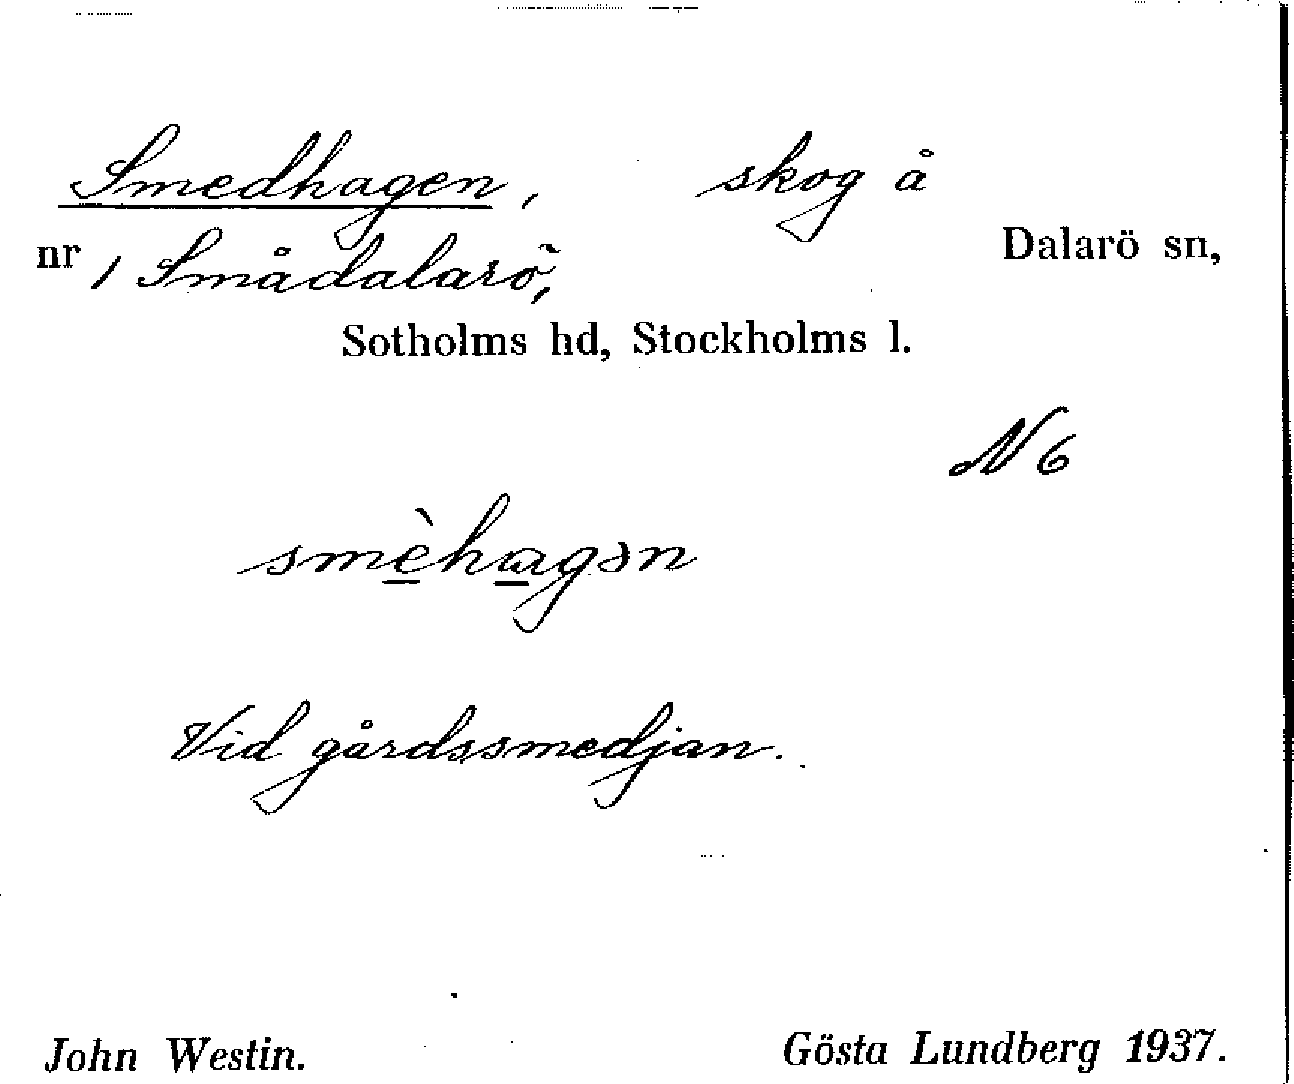 Smedhagen, skog å
nr 1 Smådalarö, Dalarö sn,
Sotholms hd, Stockholms l.
N 6
smèhagən
Vid gårdssmedjan.
John Westin. Gösta Lundberg 1937.